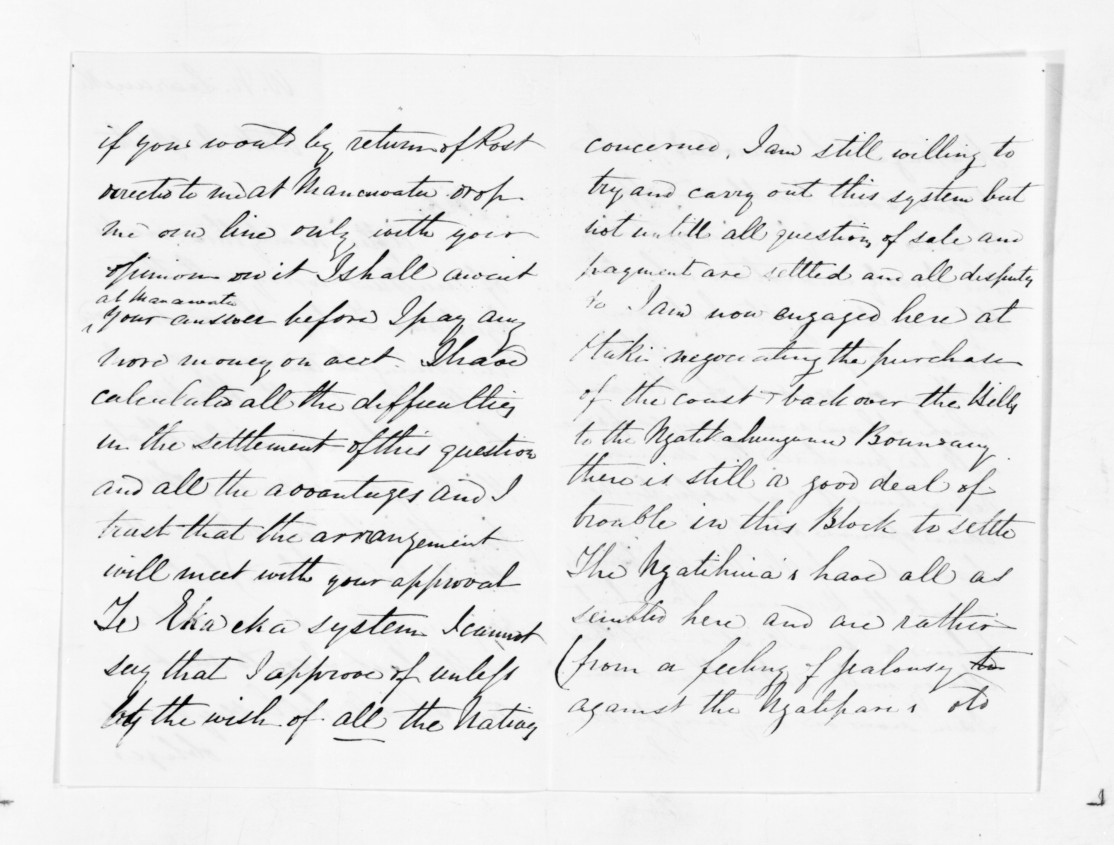 if you would by return of Post
directed to me at Manawatu drop
me one line only with your
opinion on it I shall await
at Manawatu
your answer before I pay any
more money on acct. I have
calculated all the difficulties
in the settlement of this question
and all the advantages and I
trust that the arrangement
will meet with your approval
Te system I cannot
say that I approve of unless
by the wish of all the Natives
concerned, I am still willing to
try and carry out this system but
not untill all question of sale and
payment are settled and all disputes
I am now engaged here at
Otaki negociating the purchase
of the coast & back over the Hills
to the Ngatikahungunu Boundary
there is still a good deal of
trouble in this Block to settle
The Ngatihuia's have all as
sembled here and are rather
(from a feeling of jealousy to
against the Ngatipare's old